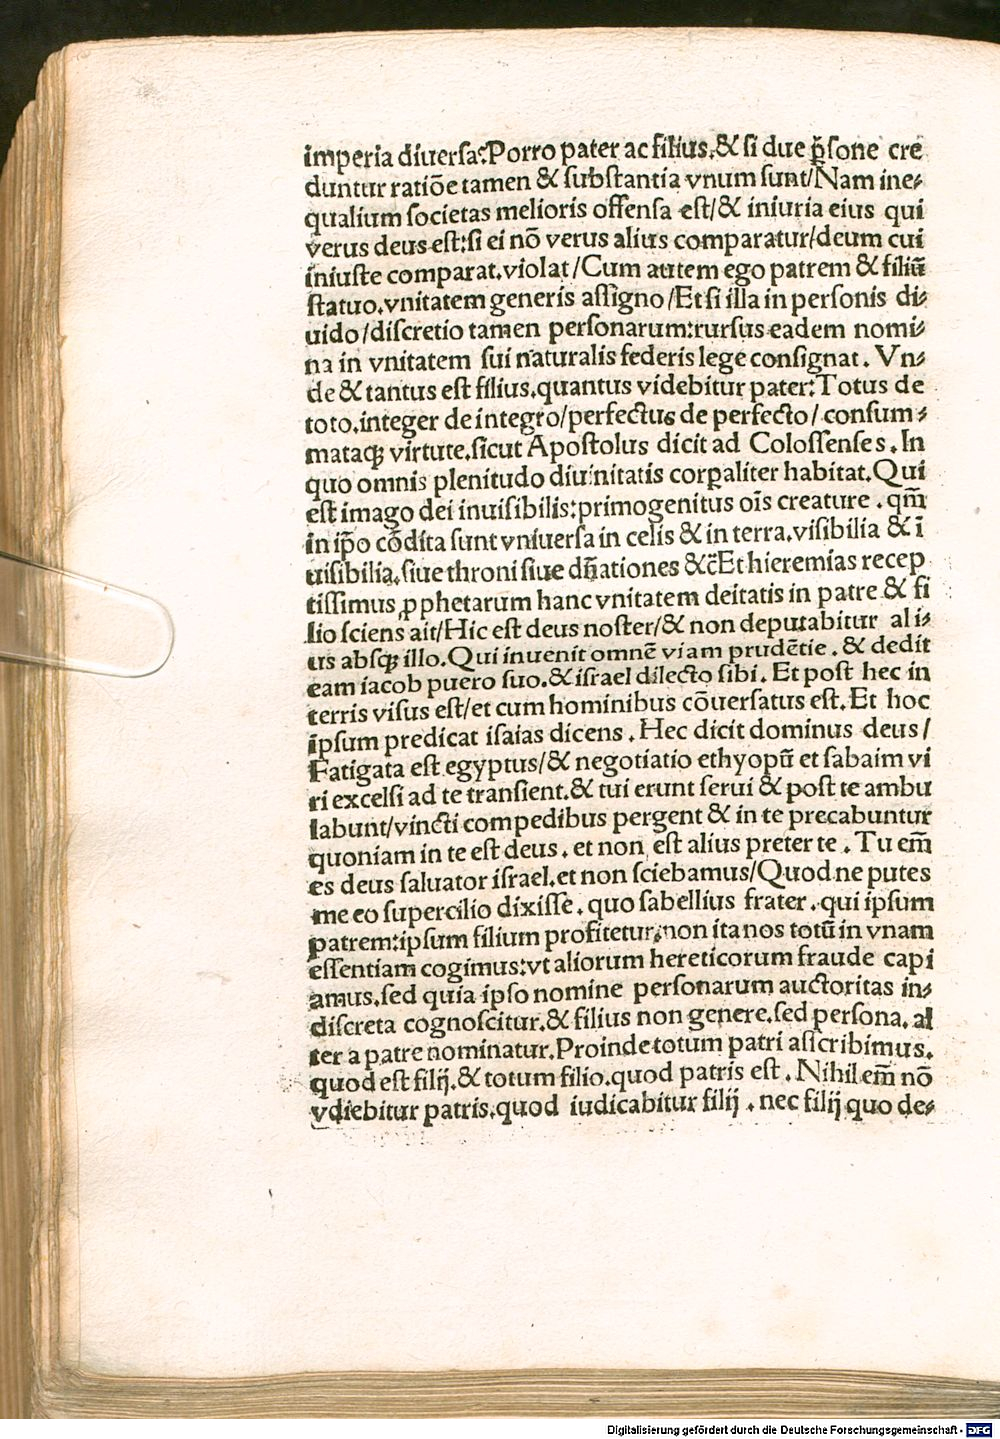 imperia diuersa:Porro pater ac filius,& si due p̄sone cre
duntur ratiōe tamen & substantia vnum sunt/Nam ine⸗
qualium societas melioris offensa est/& iniuria eius qui
verus deus est:si ei nō verus alius comparatur/deum cui
iniuste comparat.violat/Cum autem ego patrem & filiū
statuo.vnitatem generis assigno/Et si illa in personis di⸗
uido/discretio tamen personarum:rursus eadem nomi⸗
na in vnitatem sui naturalis federis lege consignat. Vn⸗
de & tantus est filius.quantus videbitur pater:Totus de
toto.integer de integro/perfectus de perfecto/consum⸗
mataqꝫ virtute.sicut Apostolus dicit ad Colossenses. In
quo omnis plenitudo diuinitatis corꝑaliter habitat.Qui
est imago dei inuisibilis:primogenitus oīs creature . qm̄
in ip̄o cōdita sunt vniuersa in celis & in terra.visibilia & ī
uisibilia.siue throni siue dn̄ationes &c̄Et hieremias recep
tissimus ꝓphetarum hanc vnitatem deitatis in patre & fi
lio sciens ait/Hic est deus noster/& non deputabitur ali⸗
us absqꝫ illo.Qui inuenit omnē viam prudētie . & dedit
eam iacob puero suo.& israel dilecto sibi. Et post hec in
terris visus est/et cum hominibus cōuersatus est.Et hoc
ipsum predicat isaias dicens . Hec dicit dominus deus/
Fatigata est egyptus/& negotiatio ethyopū et sabaim vi
ri excelsi ad te transient.& tui erunt serui & post te ambu
labunt/vincti compedibus pergent & in te precabuntur
quoniam in te est deus . et non est alius preter te . Tu em̄
es deus saluator israel.et non sciebamus/Quod ne putes
me eo supercilio dixisse . quo sabellius frater . qui ipsum
patrem:ipsum filium profitetur.non ita nos totū in vnam
essentiam cogimus:vt aliorum hereticorum fraude capi
amus.sed quia ipso nomine personarum auctoritas in⸗
discreta cognoscitur.& filius non genere.sed persona. al
ter a patre nominatur.Proinde totum patri asscribimus.
quod est filij.& totum filio.quod patris est . Nihil em̄ nō
vdiebitur patris.quod iudicabitur filij . nec filij quo de⸗
Digitalisierung gefördert durch die Deutsche Forschungsgemeinschaft - DFG